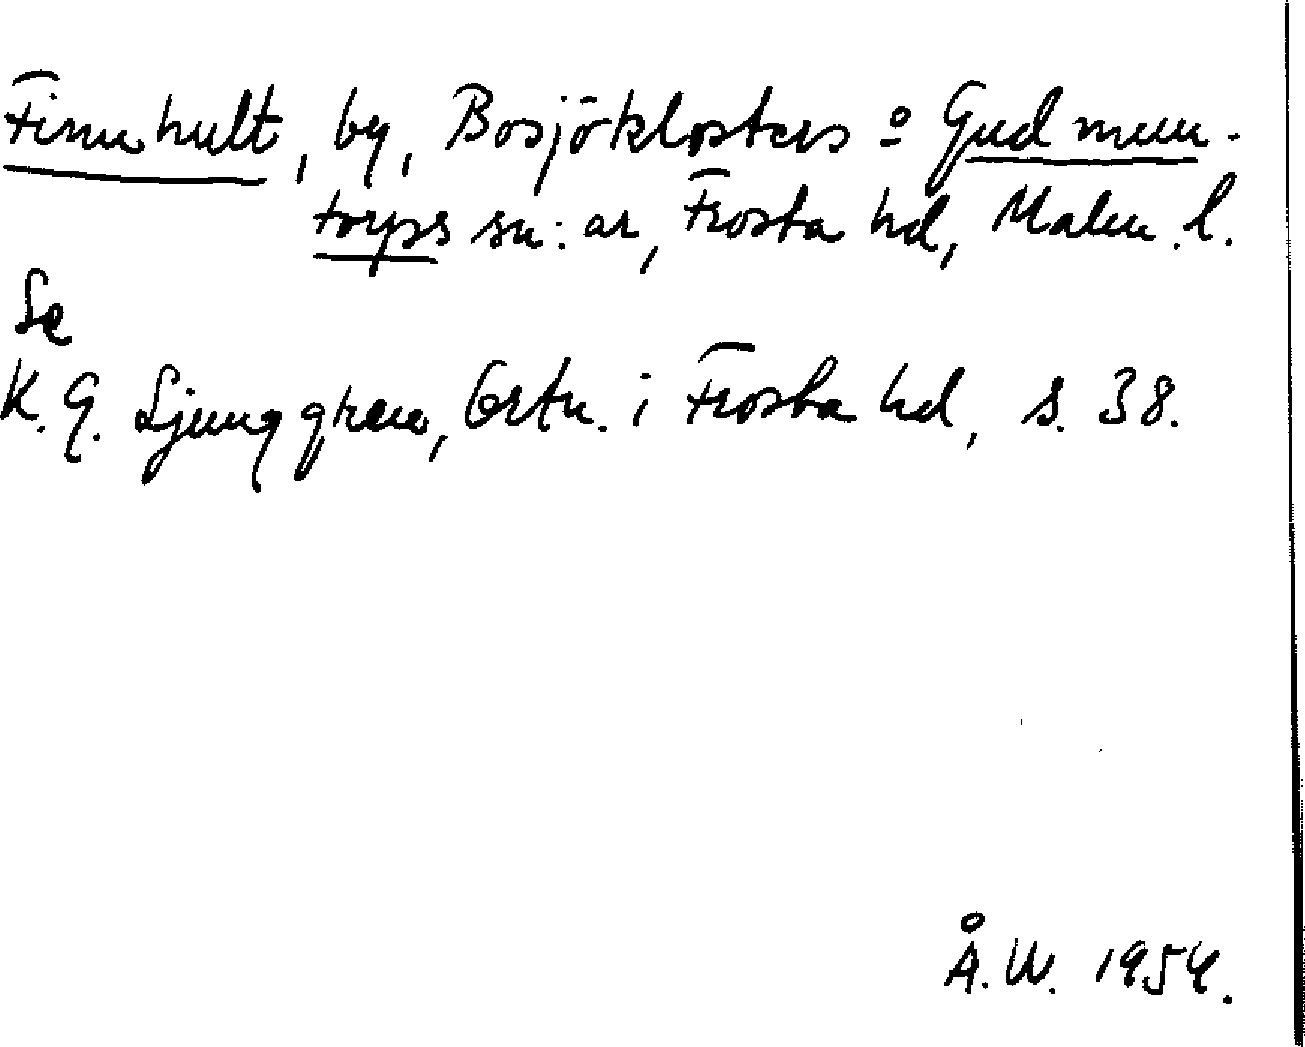 Finnhult, by, Bosjöklosters o Gudmun-
torps sn:ar, Frosta hd, Malm. l.
Se
K. G. Ljunggren, Ortn. i Frosta hd, s. 38.
Å. W. 1954.